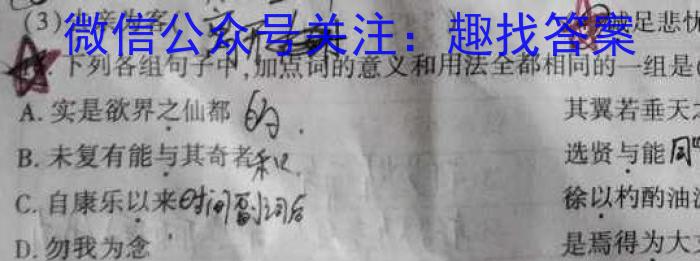 (3)
微信公众号关注：趣找答案
足悲
下列各组句子中,加点词的意义和用法全都相同的一组是(
A. 实是欲界之仙都 的. 其翼若垂天
B. 未复有能与其奇者 和 选贤与能
C. 自康乐以来 时间 后 徐以杓酌油
D. 勿我为念 是焉得为大